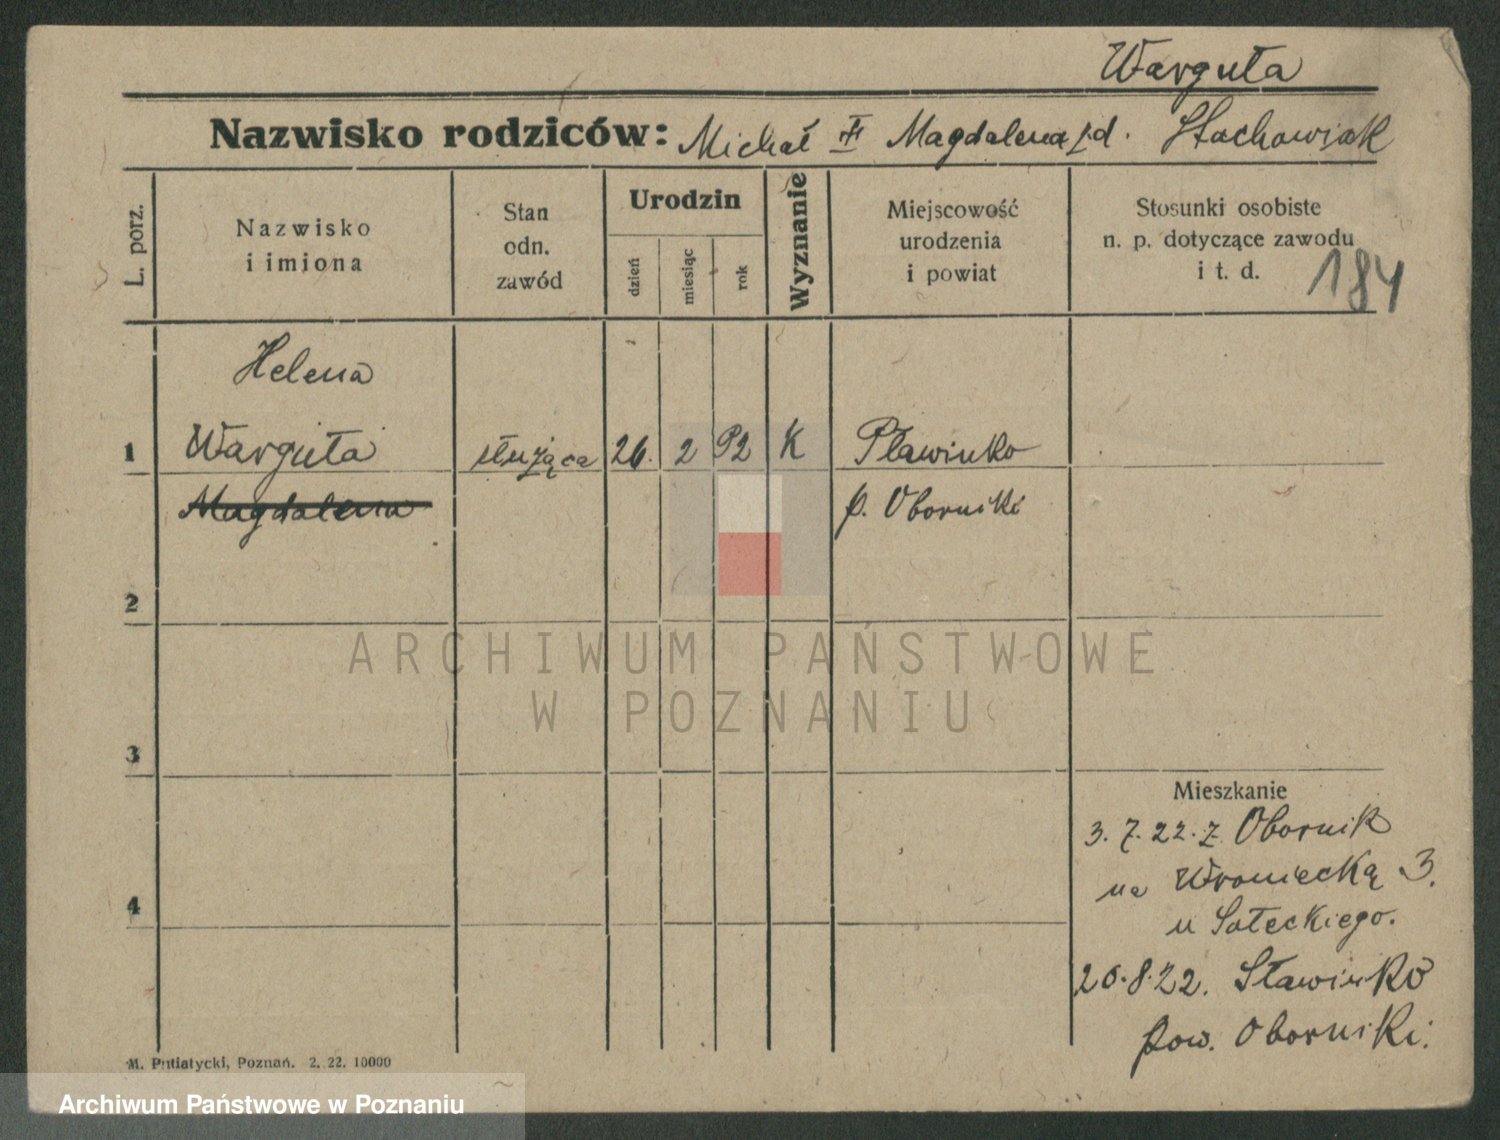 Warguła
Nazwisko rodziców: Michał Magdalena z d. Stachowiak
L. porz.
Nazwisko
i imiona
Stan
odn.
zawód
Urodzin
dzień
miesiąc
rok
Wyznanie
Miejscowość
urodzenia
i powiat
Stosunki osobiste
n. p. dotyczące zawodu
i t. d.
184
Helena
1 Warguła służąca 26. 2 92 K Pławinko
Magdalena p. Oborniki
2
3
4
ARCHIWUM PAŃSTWOWE
W POZNANIU
Mieszkanie
3. 7. 22. z Obornik
na Wroniecką 3.
u Sołeckiego.
20.8.22. Sławinko
pow. Oborniki.
M. Putiatycki, Poznań. 2. 22. 10000
Archiwum Państwowe w Poznaniu